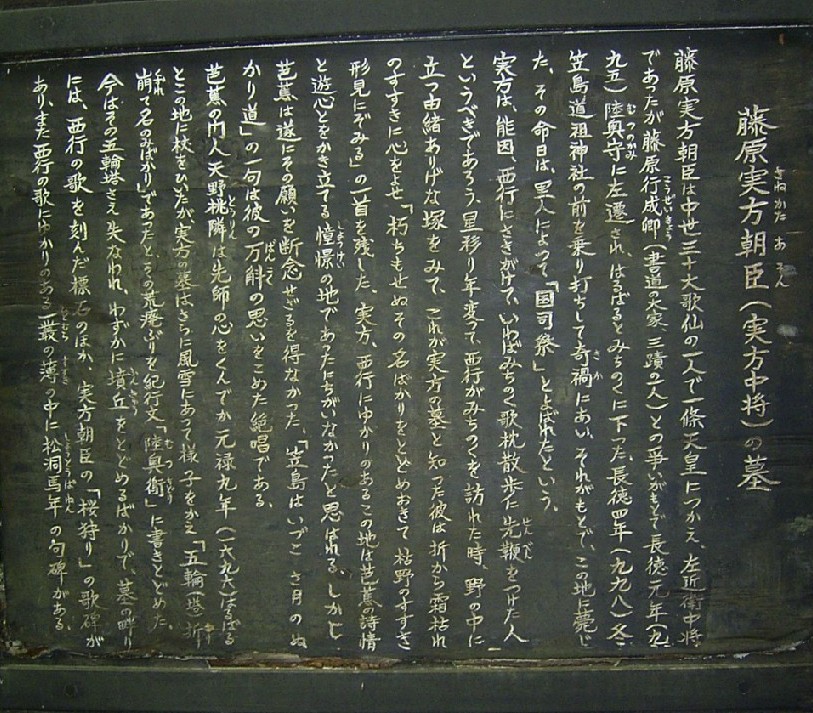 藤原実方朝臣(実方中将)の墓
さねかた あ そん
藤原実方朝臣は中世三十六歌仙の一人で一條天皇につかえ、左近衛中将
であったが藤原行成卿(書道の大家、三蹟の一人)との争いがもとで長徳元年(九
こうぜいきょう
九五)陸奥守に左遷され、はるばるとみちのくに下った。長徳四年(九九八)冬、
むつのかみ
笠島道祖神社の前を乗り打ちして奇禍にあい、それがもとで、この地に薨じ
きか
た。その命日は、里人によって「国司祭」とよばれたという。
実方は、能因、西行にさきがけて、いわばみちのく歌枕散歩に先鞭をつけた人
せんべん
というべきであろう、星移り年変って、西行がみちのくを訪れた時、野の中に
立つ由緒ありげな塚をみて、これが実方の墓と知った彼は折から霜枯れ
のすすきに心をよせ「朽ちもせぬその名ばかりをとどめおきて枯野のすすき
形見にぞみる」の一首を残した。実方、西行にゆかりのあるこの地は芭蕉の詩情
と遊心とをかき立てる憧憬の地であったにちがいなかったと思はれる。しかし
しょうけい
芭蕉は遂にその願いを断念せざるを得なかった。「笠島はいづこ さ月のぬ
かり道」の一句は彼の万斛の思いをこめた絶唱である。
ばんこく
芭蕉の門人天野桃隣は先師の心をくんでか元禄九年(一六九六)はるばる
とうりん
とこの地に杖をひいたが実方の墓はさらに風雪にあって様子をかえ「五輪(塔)折
崩て名のみばかり」であったと、その荒廃ぶりを紀行文「陸奥鵆」に書きとどめた。
くずれ むつちどり
今はその五輪塔さえ失なわれ、わずかに墳丘をとどめるばかりで、墓の畔り
ふんきゅう
には、西行の歌を刻んだ標石のほか、実方朝臣の「桜狩り」の歌碑が
あり、また西行の歌にゆかりのある一叢の薄の中に松洞馬年の句碑がある。
ひとむら すすき しょうとうばねん